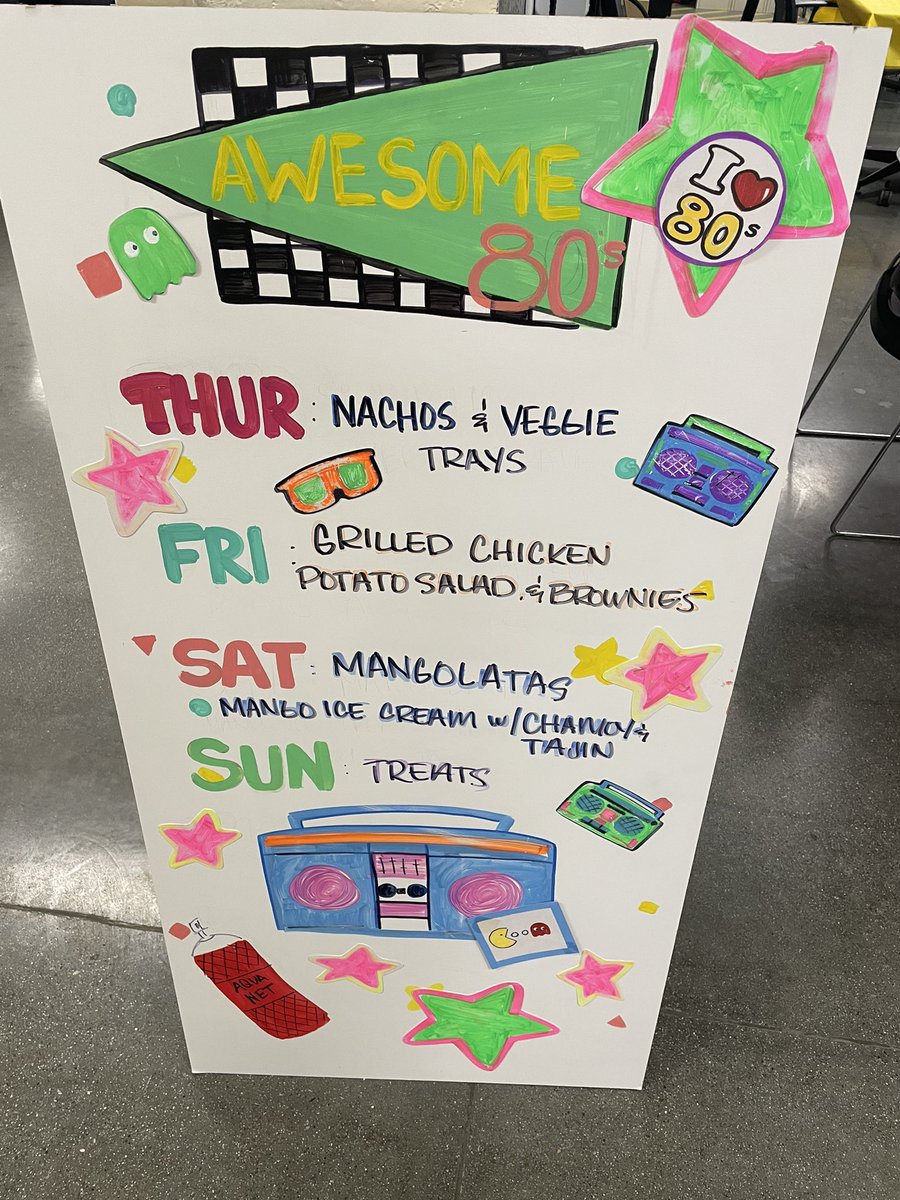 AWESOME
80's
I ♥
80s
THUR: NACHOS & VEGGIE
TRAYS
FRI: GRILLED CHICKEN
POTATO SALAD, & BROWNIES
SAT: MANGOLATAS
MANGO ICE CREAM w/CHAMOY &
TAJIN
SUN: TREATS
AQUA
NET